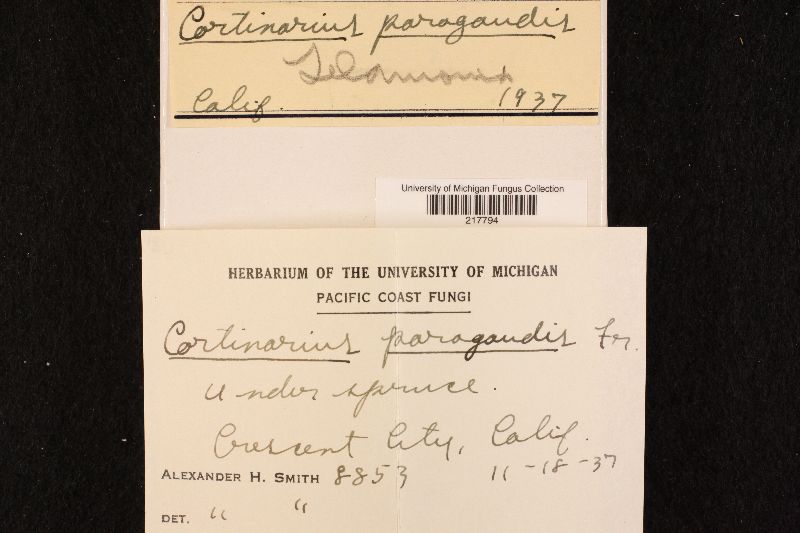 Cortinarius paragaudis
Telamonia
Calif. 1937
University of Michigan Fungus Collection
217794
HERBARIUM OF THE UNIVERSITY OF MICHIGAN
PACIFIC COAST FUNGI
Cortinarius paragaudis Fr.
Under spruce.
Crescent City, Calif.
ALEXANDER H. SMITH 8853 11-18-37
DET. " "